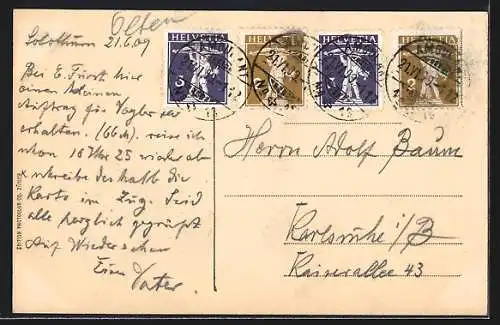 Olten
Solothurn 21.6.09
Bei E. Fürst hier
einen kleinen
Auftrag für Vogler
erhalten. (66 M.) reise ich
schon 16 Uhr 25 wieder ab
schreibe deshalb die
Karte im Zug. Seid
alle herzlich gegrüsst
Auf Wiedersehen
Euer Vater.
HELVETIA HELVETIA HELVETIA HELVETIA
3 2 3 2
AMBULANT
Herrn Adolf Baum
Karlsruhe i/B
Kaiserallee 43
EDITION PHOTOGLOB CO. ZÜRICH